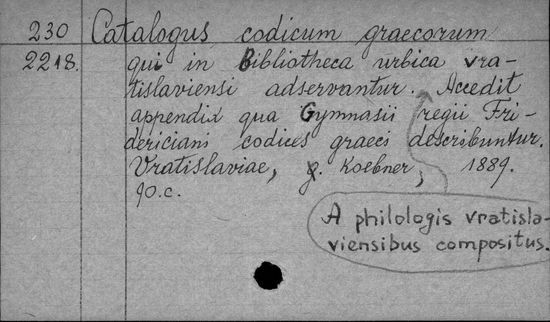 230 Catalogus codicum graecorum
2218. qui in Bibliotheca urbica vra-
tislaviensi adservantur. Accedit
appendix qua Gymnasii regii Fri-
dericiani codices graeci describuntur.
Vratislaviae, g. Koebner, 1889.
90.c.
A philologis vratisla-
viensibus compositus.